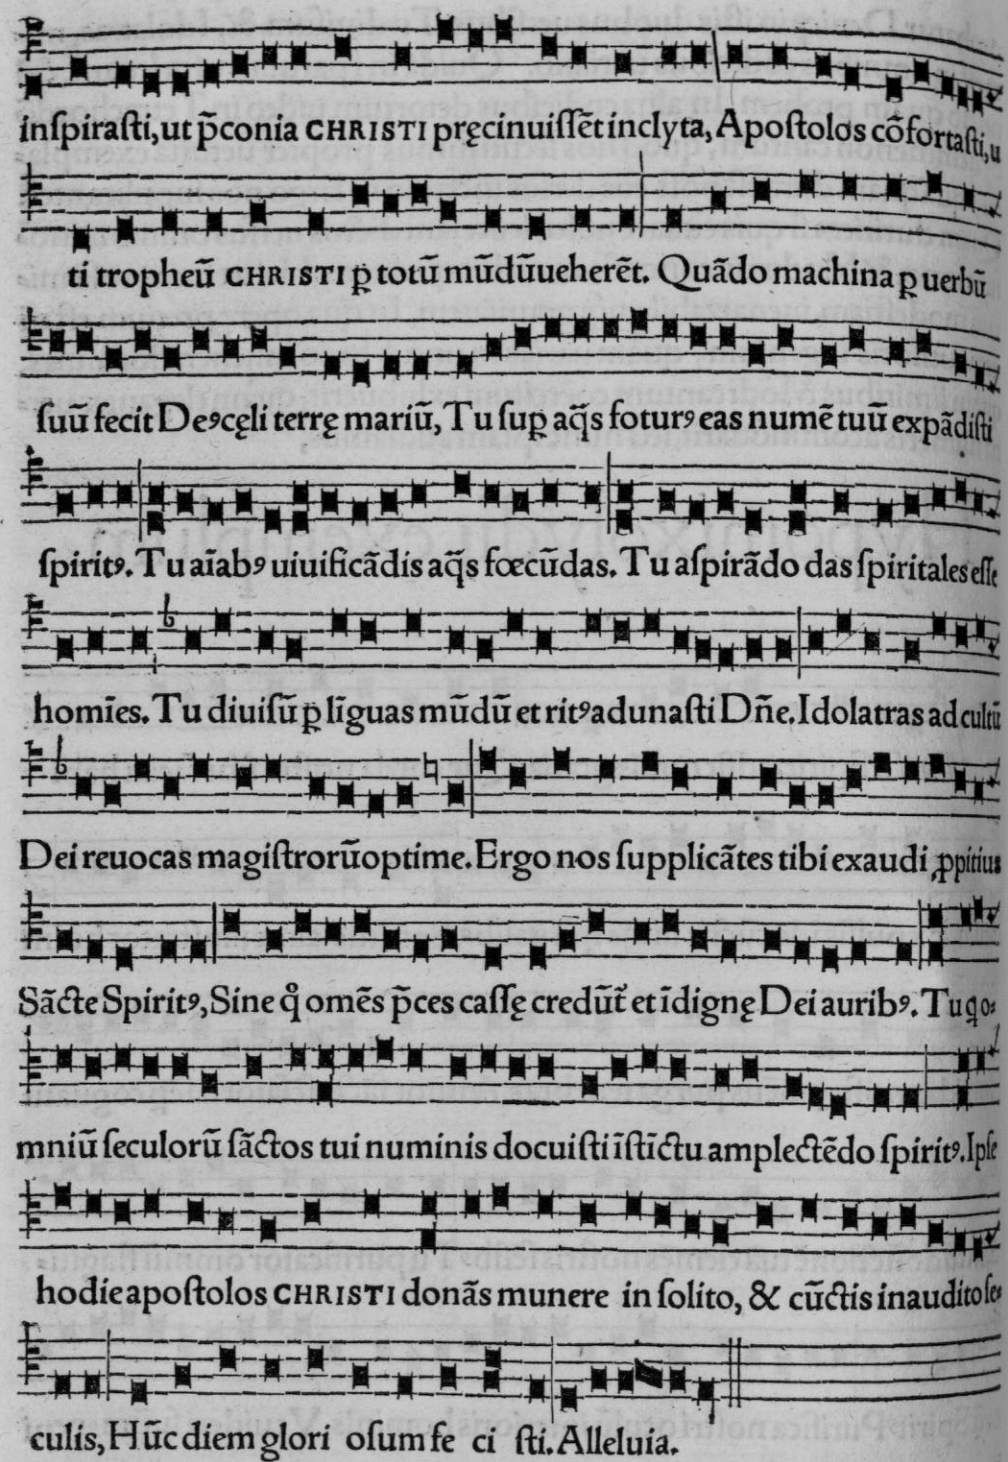 inſpiraſti, ut p̄conia CHRISTI pręcinuiſſēt inclyta, Apoſtolos cōfortaſti, u
ti tropheū CHRISTI ꝑ totū mūdūueherēt. Quādo machina ꝑ uerbū
ſuū fecit Deꝰ cęli terrę mariū, Tu ſuꝑ aq̄s foturꝰ eas numē tuū expādiſti
ſpiritꝰ. Tu aīabꝰ uiuificādis aq̄s fœcūdas. Tu aſpirādo das ſpiritales eſſe
homīes. Tu diuiſū ꝑ līguas mūdū et ritꝰ adunaſti Dn̄e. Idolatras ad cultū
Dei reuocas magiſtrorū optime. Ergo nos ſupplicātes tibi exaudi ꝓpitius
Sācte Spiritꝰ, Sine q° omēs p̄ces caſſę credūt᷑ et īdignę Dei auribꝰ. Tu q o-
mniū ſeculorū ſāctos tui numinis docuiſti īſtīctu amplectēdo ſpiritꝰ. Ipſe
hodie apoſtolos CHRISTI donās munere in ſolito, & cūctis inaudito ſe-
culis, Hūc diem glori oſum fe ci ſti. Alleluia.